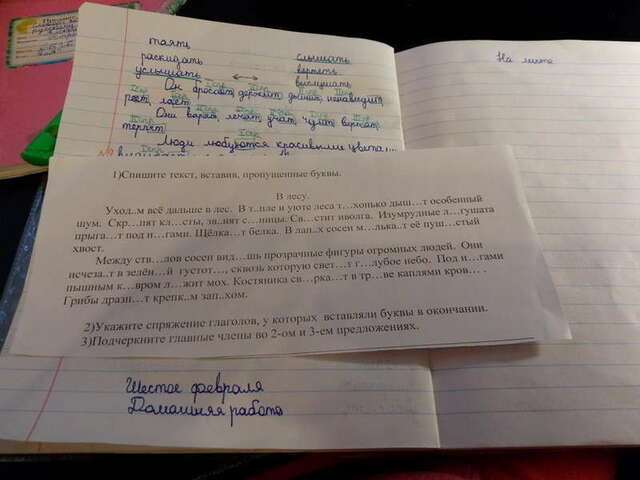 таять
раскидать
услышать
слышать
вертеть
выслушать
На мите
Он бросает, держит, дышит, ненавидит,
лает.
Они варят, лечат, учат, чуют, вертят,
терпят.
Люди любуются красивыми цветами
1)Спишите текст, вставив, пропущенные буквы.
В лесу.
Уход..м всё дальше в лес. В т..пле и уюте леса т…хонько дыш…т особенный
шум. Скр…пят кл…сты, зв..нят с…ницы. Св…стит иволга. Изумрудные л…гушата
прыга…т под н…гами. Щёлка…т белка. В лап..х сосен м…лька..т её пуш…стый
хвост.
Между ств…лов сосен вид…шь прозрачные фигуры огромных людей. Они
исчеза..т в зелён…й густот…, сквозь которую свет…т г…лубое небо. Под н…гами
пышным к…вром л…жит мох. Костяника св…рка…т в тр…ве каплями кров… .
Грибы дразн…т крепк..м зап..хом.
2)Укажите спряжение глаголов, у которых вставляли буквы в окончании.
3)Подчеркните главные члены во 2-ом и 3-ем предложениях.
Шестое февраля
Домашняя работа